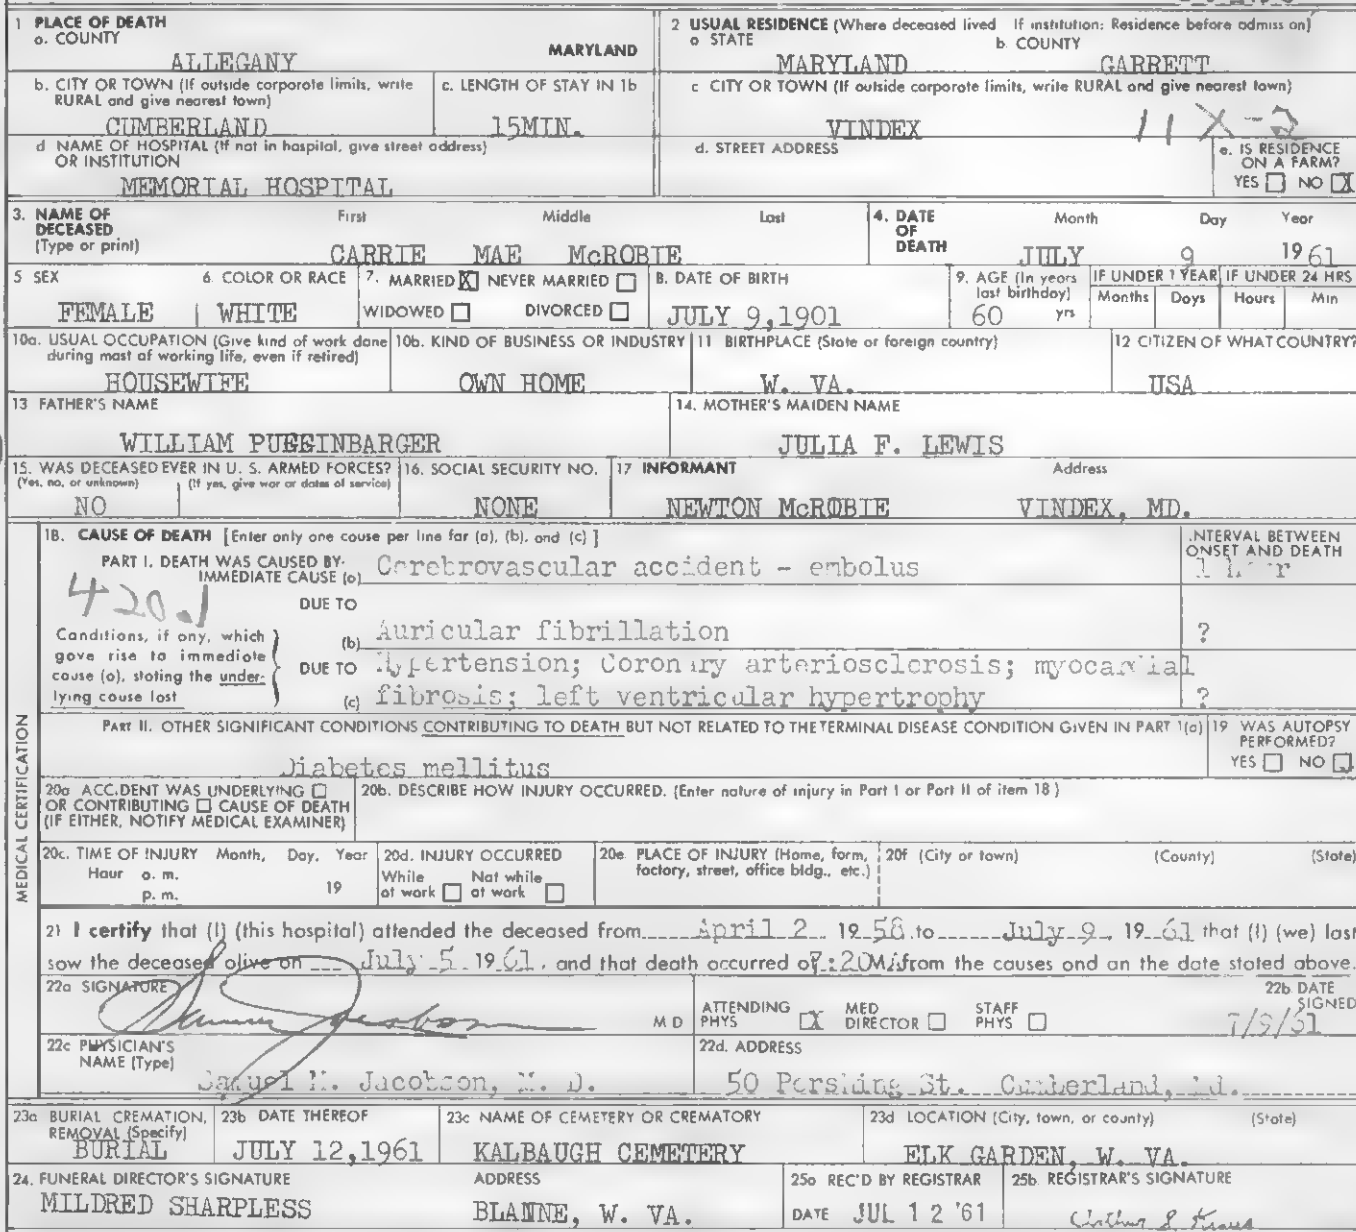 1 PLACE OF DEATH
a. COUNTY
MARYLAND
ALLEGANY
2 USUAL RESIDENCE (Where deceased lived If institution: Residence before admiss on)
a STATE
b. COUNTY
MARYLAND GARRETT
b. CITY OR TOWN (If outside corporate limits, write RURAL and give nearest town)
CUMBERLAND
c. LENGTH OF STAY IN 1b
15MIN.
c CITY OR TOWN (If outside corporate limits, write RURAL and give nearest town)
VINDEX
11 X-2
d NAME OF HOSPITAL (If not in hospital, give street address)
OR INSTITUTION
MEMORIAL HOSPITAL
d. STREET ADDRESS
e. IS RESIDENCE
ON A FARM?
YES NO X
3. NAME OF
DECEASED
(Type or print)
First Middle Last
CARRIE MAE McROBIE
4. DATE
OF
DEATH
Month Day Year
JULY 9 1961
5 SEX
FEMALE
6. COLOR OR RACE
WHITE
7. MARRIED X NEVER MARRIED
WIDOWED DIVORCED
8. DATE OF BIRTH
JULY 9,1901
9. AGE (In years
last birthday)
60 yrs
IF UNDER 1 YEAR IF UNDER 24 HRS
Months Days Hours Min
10a. USUAL OCCUPATION (Give kind of work done
during most of working life, even if retired)
HOUSEWIFE
10b. KIND OF BUSINESS OR INDUSTRY
OWN HOME
11 BIRTHPLACE (State or foreign country)
W. VA.
12 CITIZEN OF WHAT COUNTRY?
USA
13 FATHER'S NAME
WILLIAM PUFFINBARGER
14. MOTHER'S MAIDEN NAME
JULIA F. LEWIS
15. WAS DECEASED EVER IN U. S. ARMED FORCES?
(Yes, no, or unknown) (If yes, give war or dates of service)
NO
16. SOCIAL SECURITY NO.
NONE
17 INFORMANT Address
NEWTON McROBIE VINDEX, MD.
MEDICAL CERTIFICATION
18. CAUSE OF DEATH [Enter only one cause per line for (a), (b), and (c) ]
INTERVAL BETWEEN
ONSET AND DEATH
PART I. DEATH WAS CAUSED BY:
IMMEDIATE CAUSE (a) Cerebrovascular accident - embolus 1 hour
420.1
DUE TO
Conditions, if any, which
gave rise to immediate
cause (a), stating the under-
lying cause last
(b) Auricular fibrillation ?
DUE TO Hypertension; Coronary arteriosclerosis; myocardial
(c) fibrosis; left ventricular hypertrophy ?
PART II. OTHER SIGNIFICANT CONDITIONS CONTRIBUTING TO DEATH BUT NOT RELATED TO THE TERMINAL DISEASE CONDITION GIVEN IN PART 1(a)
Diabetes mellitus
19 WAS AUTOPSY
PERFORMED?
YES NO
20a ACCIDENT WAS UNDERLYING
OR CONTRIBUTING CAUSE OF DEATH
(IF EITHER, NOTIFY MEDICAL EXAMINER)
20b. DESCRIBE HOW INJURY OCCURRED. (Enter nature of injury in Part I or Part II of item 18 )
20c. TIME OF INJURY Month, Day, Year
Hour a. m.
p. m. 19
20d. INJURY OCCURRED
While at work Not while at work
20e PLACE OF INJURY (Home, farm,
factory, street, office bldg., etc.)
20f (City or town) (County) (State)
21 I certify that (I) (this hospital) attended the deceased from April 2 1958 to July 9 1961 that (I) (we) last
saw the deceased alive on July 5 1961, and that death occurred at 7:20M from the causes and on the date stated above.
22a SIGNATURE
M D
ATTENDING
PHYS X
MED
DIRECTOR
STAFF
PHYS
22b DATE
SIGNED
7/9/61
22c PHYSICIAN'S
NAME (Type)
Samuel M. Jacobson, M. D.
22d. ADDRESS
50 Pershing St. Cumberland, Md.
23a BURIAL CREMATION,
REMOVAL (Specify)
BURIAL
23b DATE THEREOF
JULY 12,1961
23c NAME OF CEMETERY OR CREMATORY
KALBAUGH CEMETERY
23d LOCATION (City, town, or county) (State)
ELK GARDEN, W. VA.
24. FUNERAL DIRECTOR'S SIGNATURE ADDRESS
MILDRED SHARPLESS BLAINE, W. VA.
25a REC'D BY REGISTRAR
DATE JUL 12 '61
25b REGISTRAR'S SIGNATURE
Arthur S. Kraus